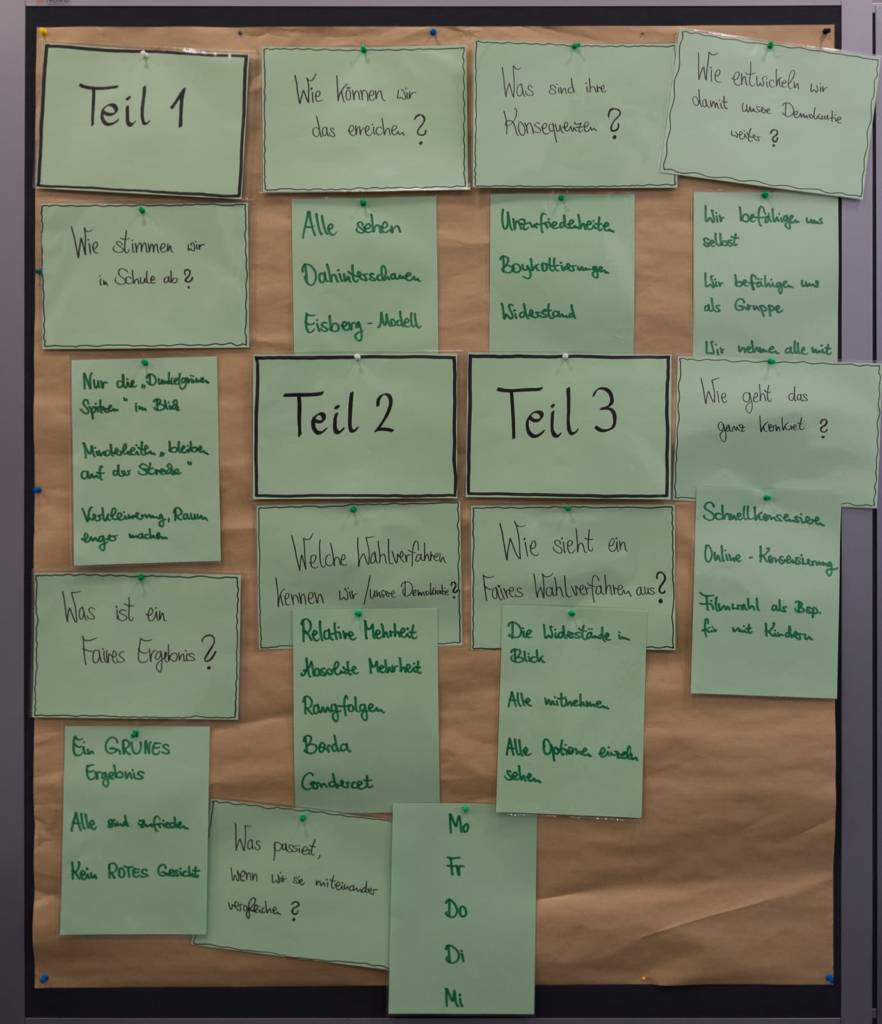 Teil 1
Wie stimmen wir
in Schule ab?
Nur die „Dunkelgrünen
Spitzen" im Blick
Minderheiten „bleiben
auf der Strecke"
Verkleinerung, Raum
enger machen
Was ist ein
Faires Ergebnis?
Ein GRÜNES
Ergebnis
Alle sind zufrieden
Kein ROTES Gesicht
Wie können wir
das erreichen?
Alle sehen
Dahinterschauen
Eisberg-Modell
Teil 2
Welche Wahlverfahren
kennen wir /unsere Demokratie?
Relative Mehrheit
Absolute Mehrheit
Rangfolgen
Borda
Condorcet
Was passiert,
wenn wir sie miteinander
vergleichen?
Mo
Fr
Do
Di
Mi
Was sind ihre
Konsequenzen?
Unzufriedenheiten
Boykottierungen
Widerstand
Teil 3
Wie sieht ein
Faires Wahlverfahren aus?
Die Widerstände im
Blick
Alle mitnehmen
Alle Optionen einzeln
sehen
Wie entwickeln wir
damit unsere Demokratie
weiter?
Wir befähigen uns
selbst
Wir befähigen uns
als Gruppe
Wir nehmen alle mit
Wie geht das
ganz konkret?
Schnellkonsensieren
Online-Konsensierung
Filmwahl als Bsp.
für mit Kindern